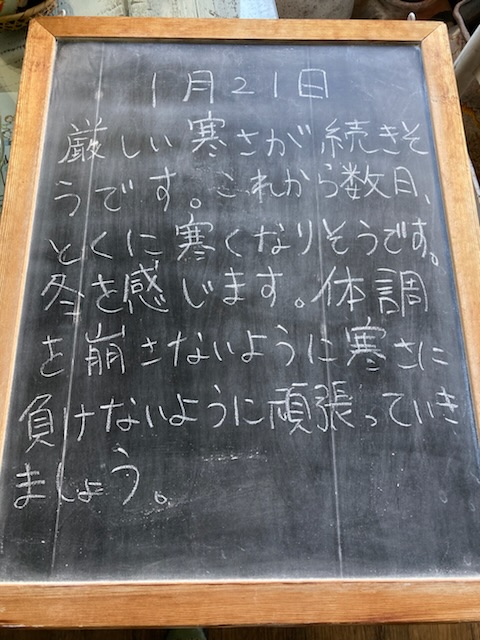 1月21日
厳しい寒さが続きそ
うです。これから数日、
とくに寒くなりそうです。
冬を感じます。体調
を崩さないように寒さに
負けないように頑張っていき
ましょう。